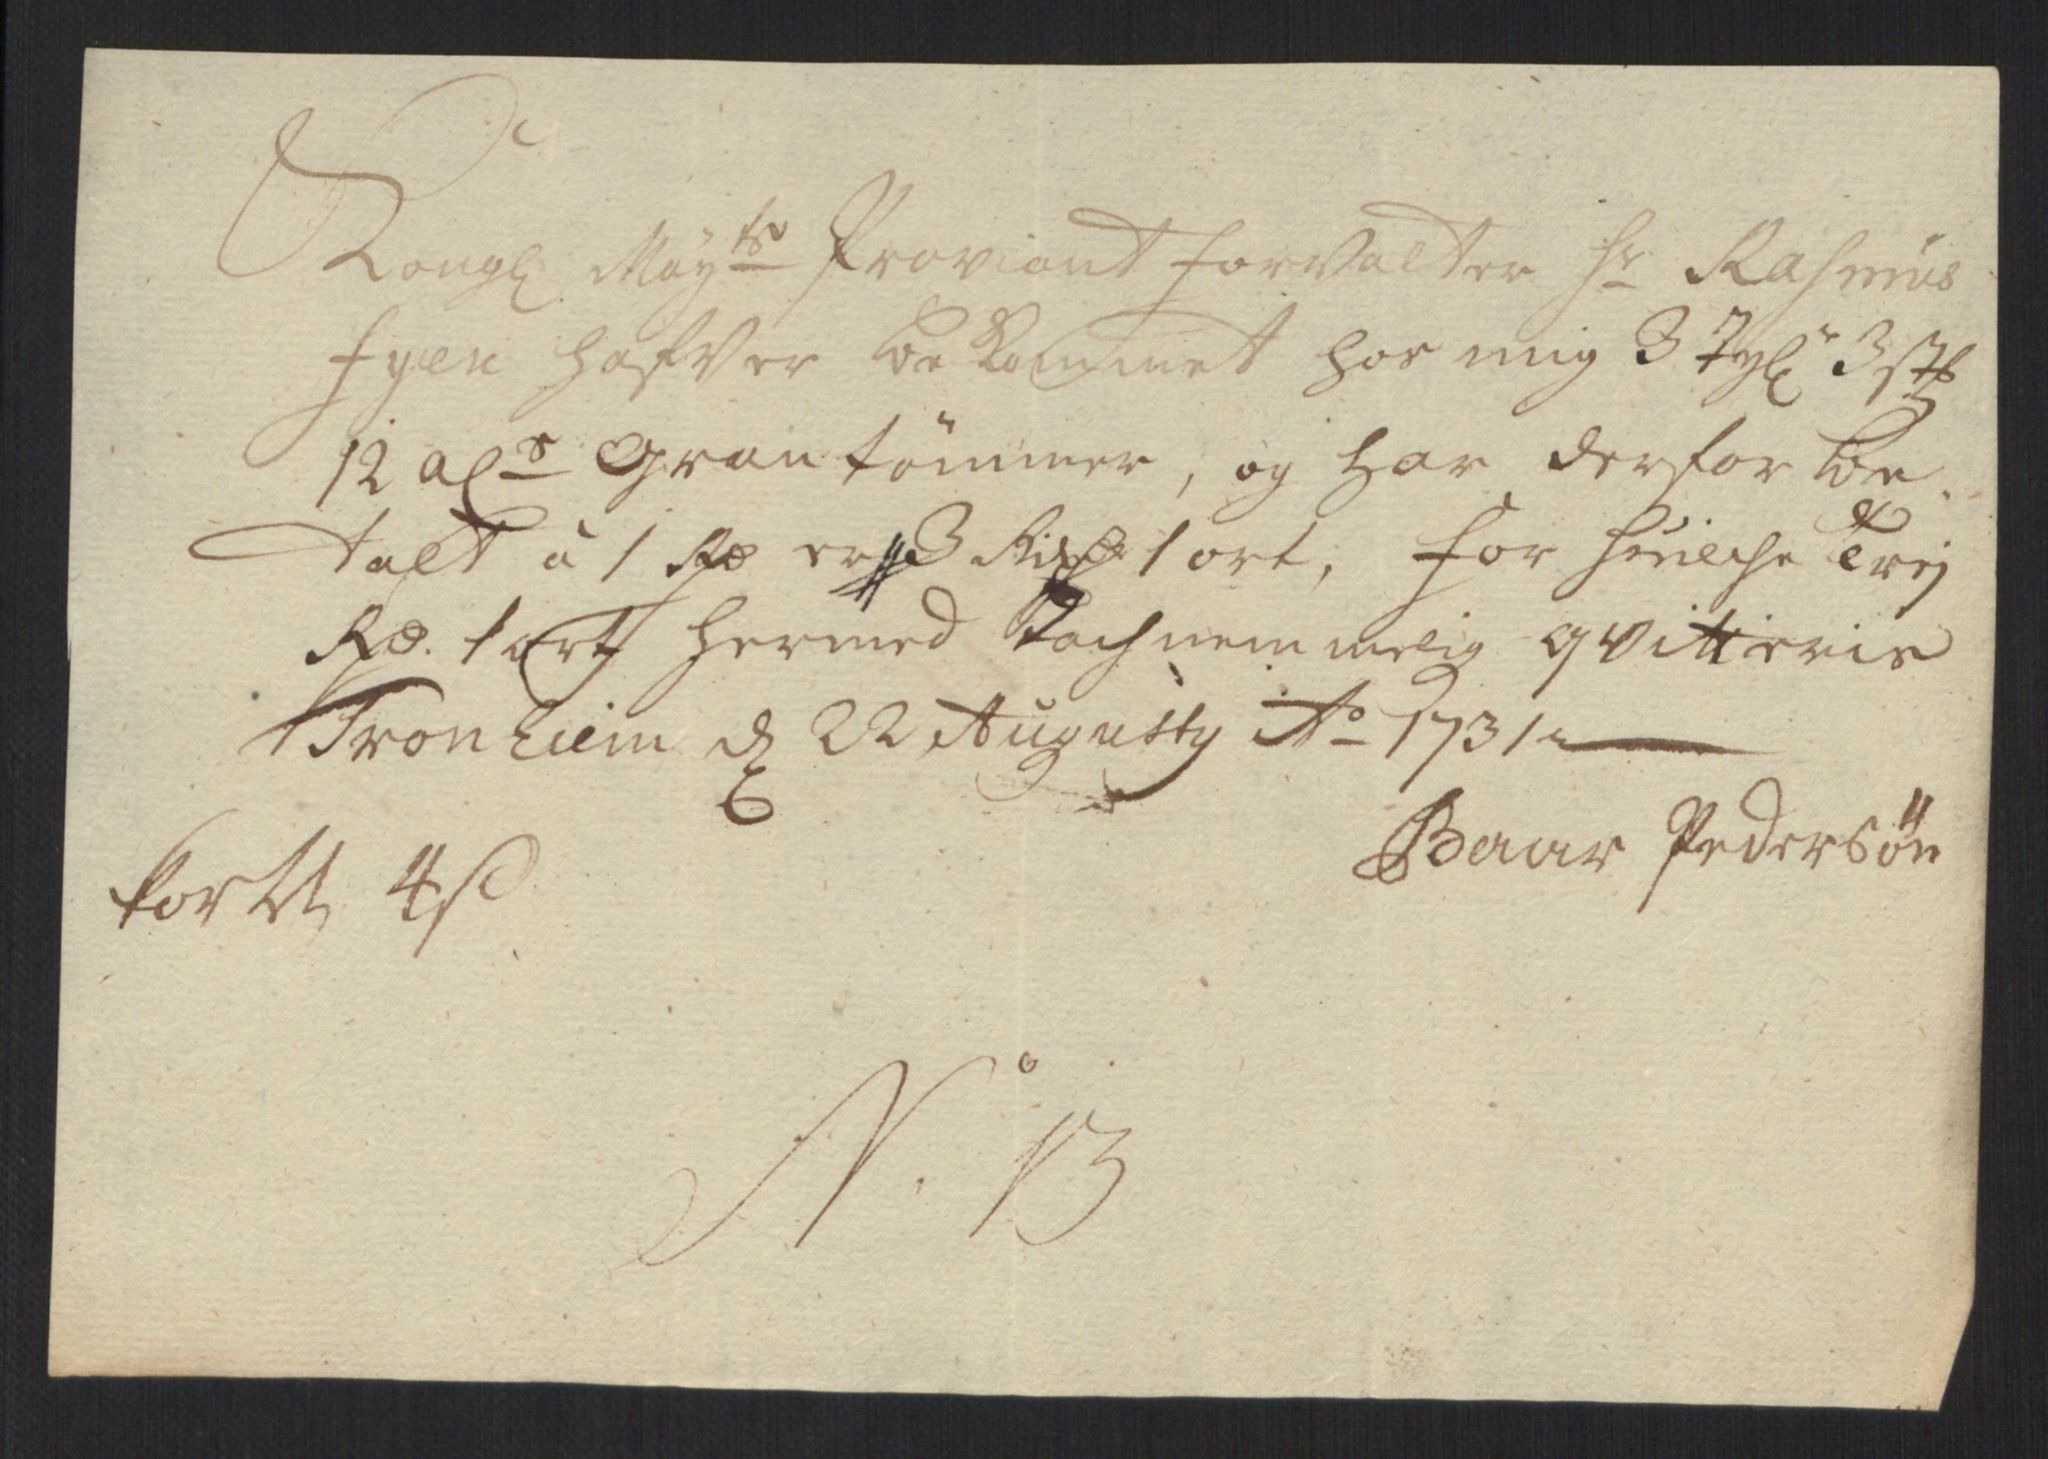 Kongl May^ts Proviant forvalter Hr Rasmus
Fyen hafver bekommet hos mig 3 Tyl^r 3 st^k
12 al^r Gran tömmer, og har derfor be-
talt à 1 Rd er 3 Rixd 1 ort, for huilche Trej
Rd. 1 ort hermed tachnemmelig qvitteris
Tronhiem d 22 Augusty A^o 1731
Baar Pedersön
kortt 4 s
N^o. 13